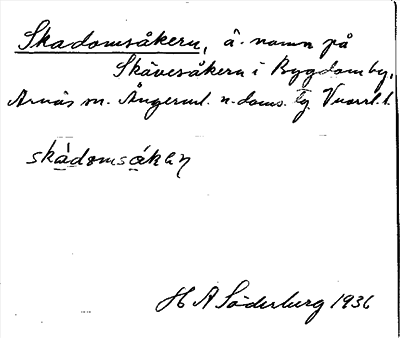 Skadomsåkern, ä. namn på
Skävesåkern i Bygdom by,
Arnäs sn. Ångerml. n. doms.
skádomsákən
H A Söderberg 1936